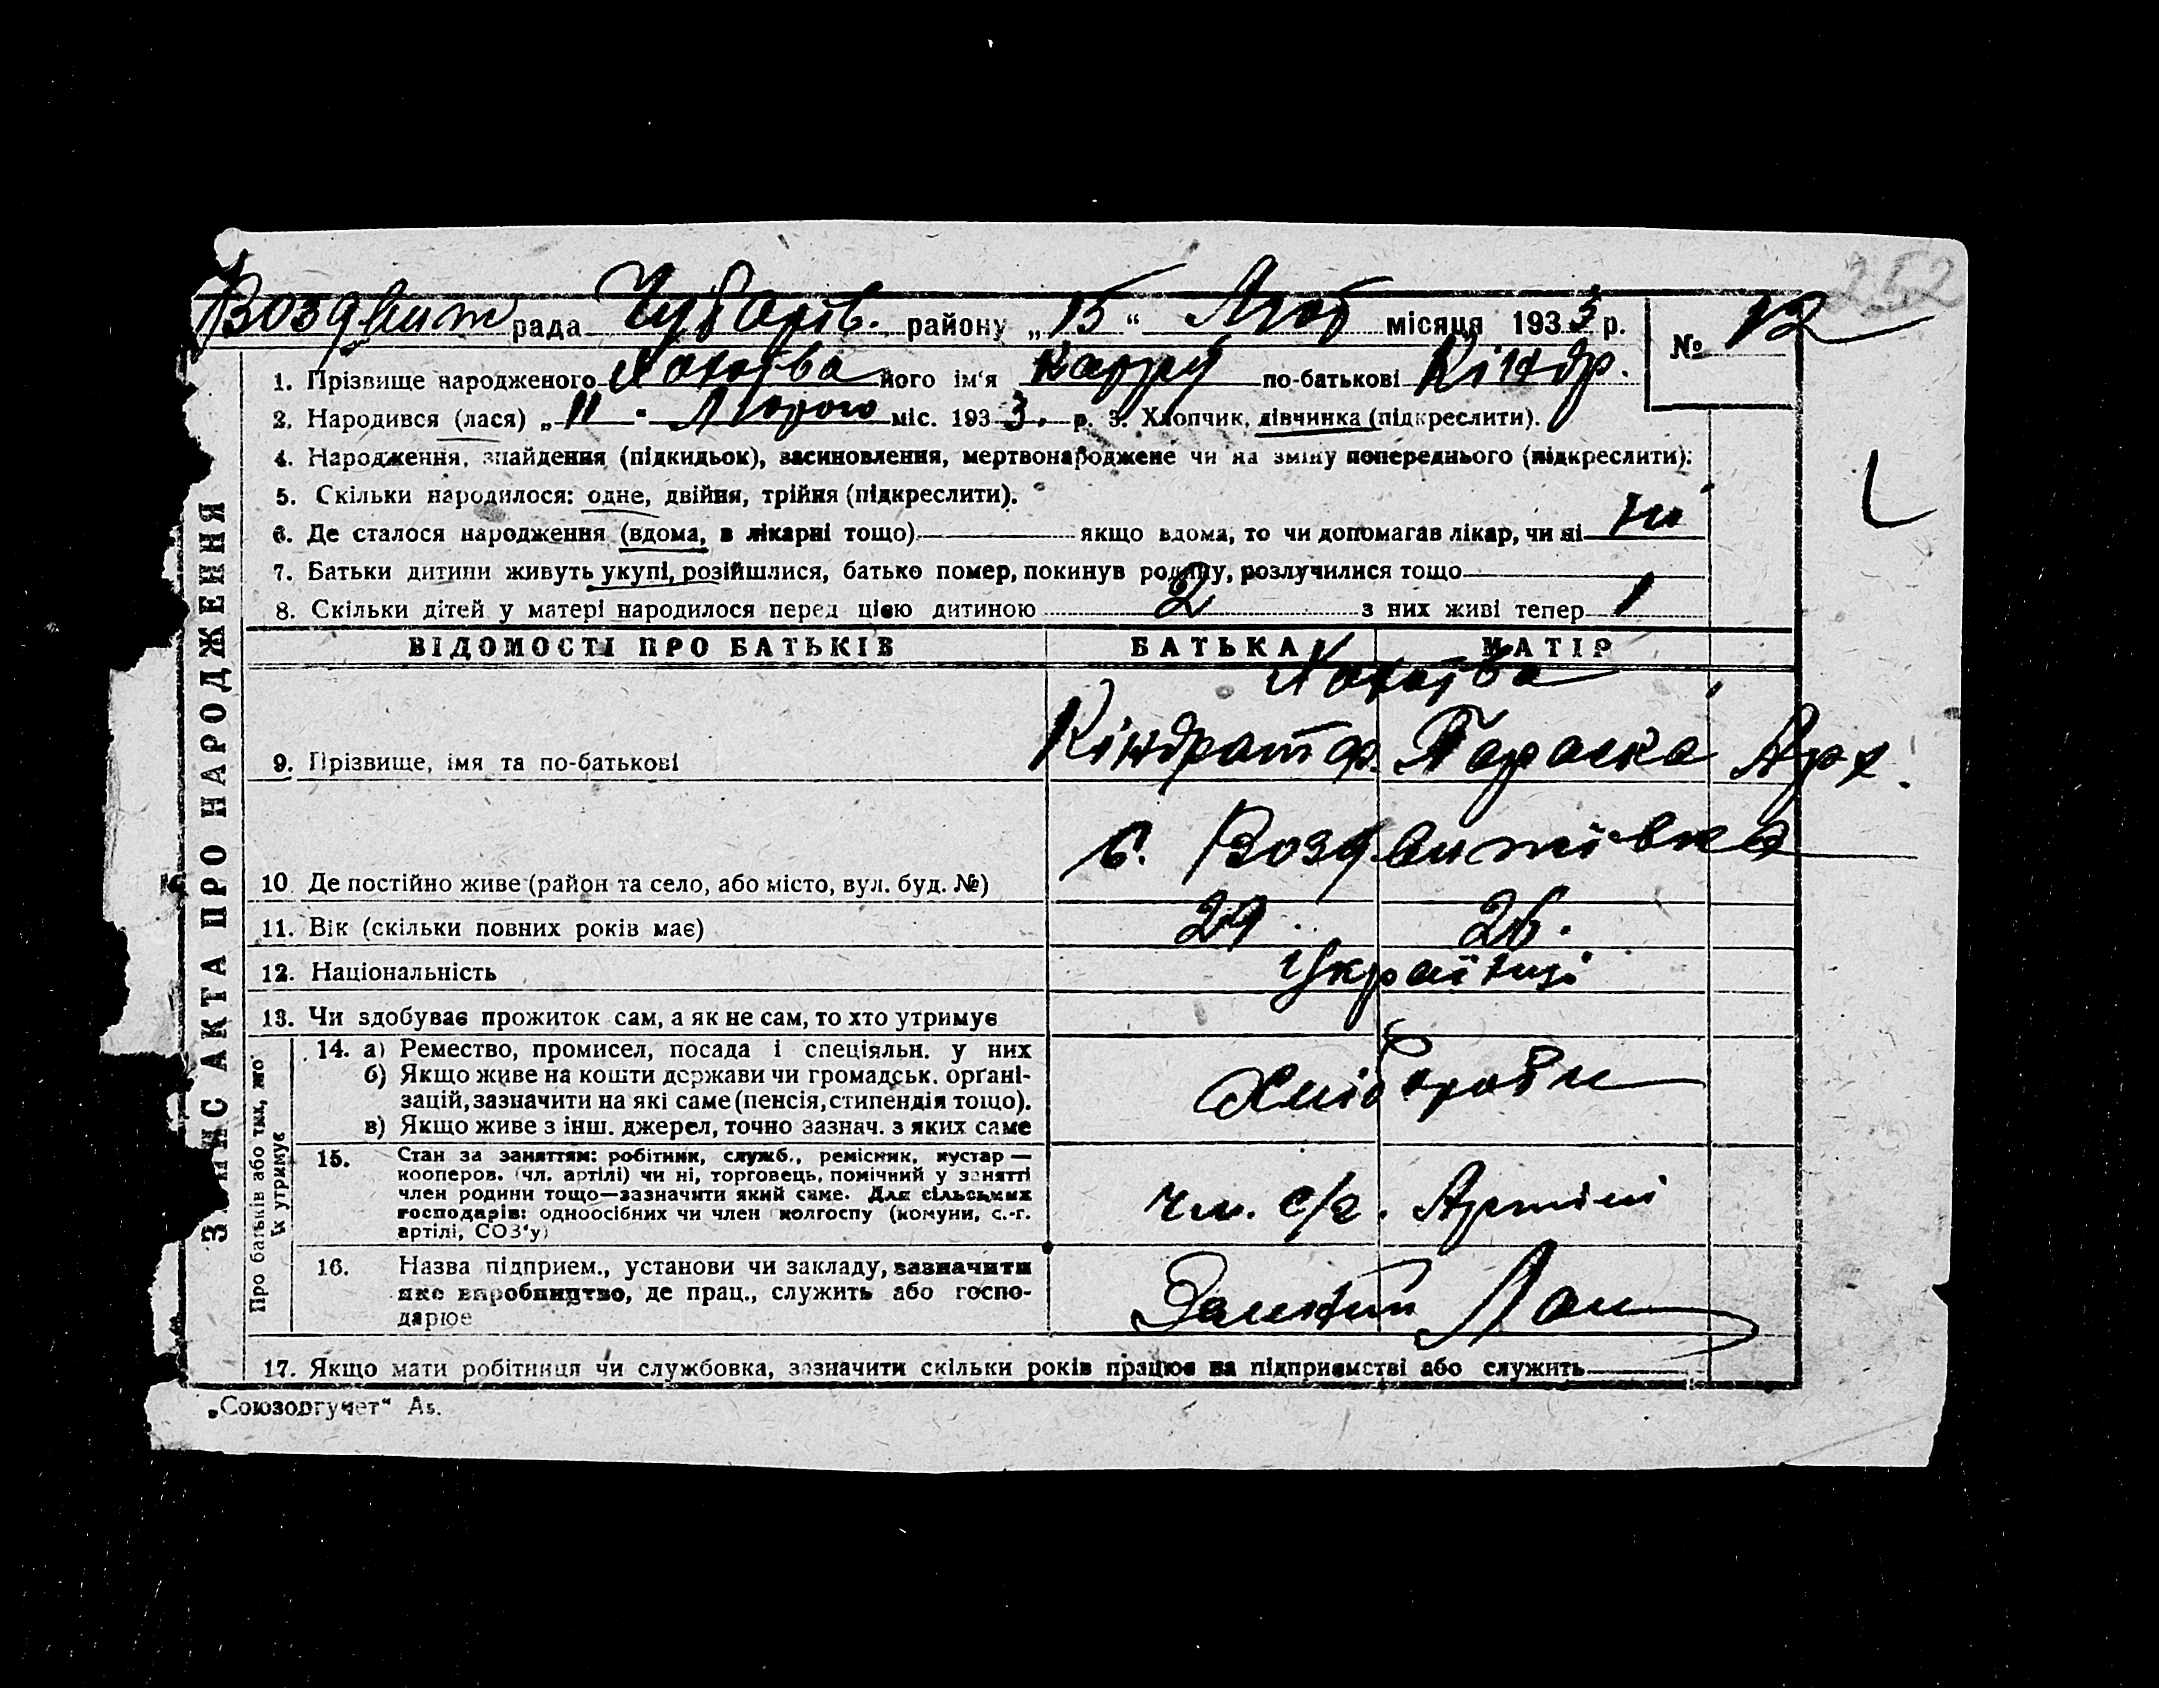 252
Воздвиж рада Чубарів. району „ 15 “ Лют місяця 1933 р. № 12
1. Прізвище народженого його ім'я по-батькові Кіндр.
2. Народився (лася) „ 11 " Лютого міс. 1933. р. 3. Хлопчик, дівчинка (підкреслити).
4. Народження, знайдення (підкидьок), засиновлення, мертвонароджене чи на зміну попереднього (підкреслити):
5. Скільки народилося: одне, двійня, трійня (підкреслити).
6. Де сталося народження (вдома, в лікарні тощо) якщо вдома, то чи допомагав лікар, чи ні ні
7. Батьки дитини живуть укупі, розійшлися, батько помер, покинув родину, розлучилися тощо
8. Скільки дітей у матері народилося перед цією дитиною 2 з них живі тепер 1
ЗАПИС АКТА ПРО НАРОДЖЕННЯ
ВІДОМОСТІ ПРО БАТЬКІВ БАТЬКА МАТІР
9. Прізвище, імя та по-батькові Кіндрат Ф. Параска Арх.
10 Де постійно живе (район та село, або місто, вул. буд. №) с. Воздвижівка
11. Вік (скільки повних років має) 29. 26.
12. Національність Українці
13. Чи здобуває прожиток сам, а як не сам, то хто утримує
Про батьків або тих, хто їх утримує
14. а) Ремество, промисел, посада і спеціяльн. у них
б) Якщо живе на кошти держави чи громадськ. органі-
зацій, зазначити на які саме (пенсія, стипендія тощо).
в) Якщо живе з інш. джерел, точно зазнач. з яких саме
Хлібороби
15. Стан за заняттям: робітник, служб., ремісник, кустар —
кооперов. (чл. артілі) чи ні, торговець, помічний у занятті
член родини тощо—зазначити який саме. Для сільських
господарів: одноосібних чи член колгоспу (комуни, с.-г.
артілі, СОЗ'у)
Чл. с/г. Артілі
16. Назва підприєм., установи чи закладу, зазначити
яке виробництво, де прац., служить або госпо-
дарює
Лан
17. Якщо мати робітниця чи службовка, зазначити скільки років працює на підприємстві або служить
„Союзоргучет“ А5.